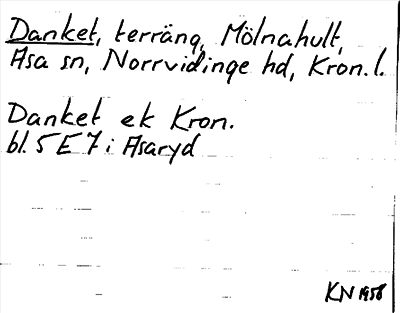 Danket, terräng, Mölnahult,
Asa sn, Norrvidinge hd, Kron. l.
Danket ek Kron.
bl. 5 E 7 i Asaryd
KN 1958